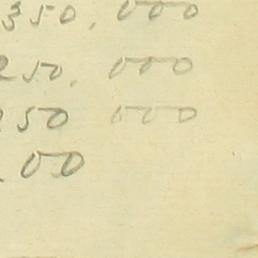 350.000
250.000
250 000
.00